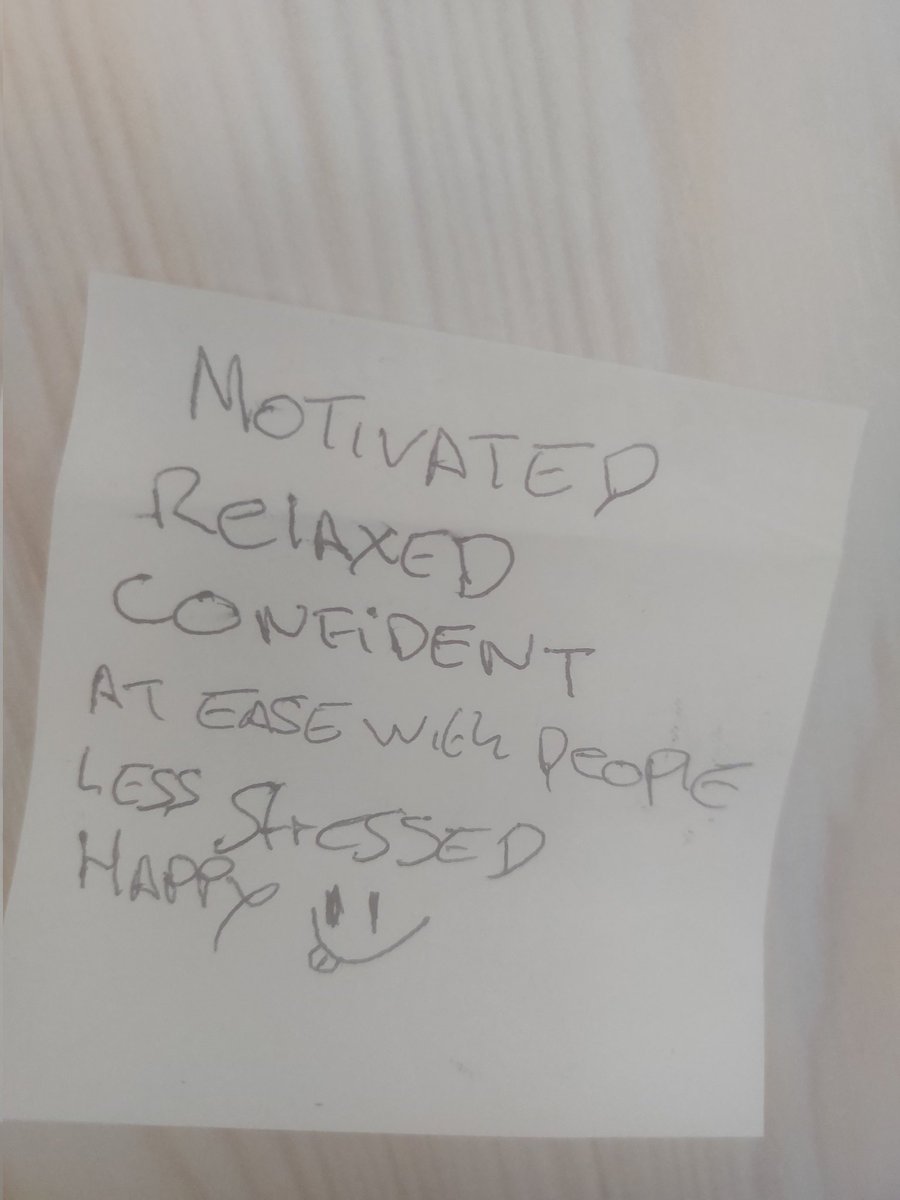 MOTIVATED
RelAXED
CONFiDENT
AT EASE WITH PEOPLE
LESS STrESSED
HAPPY